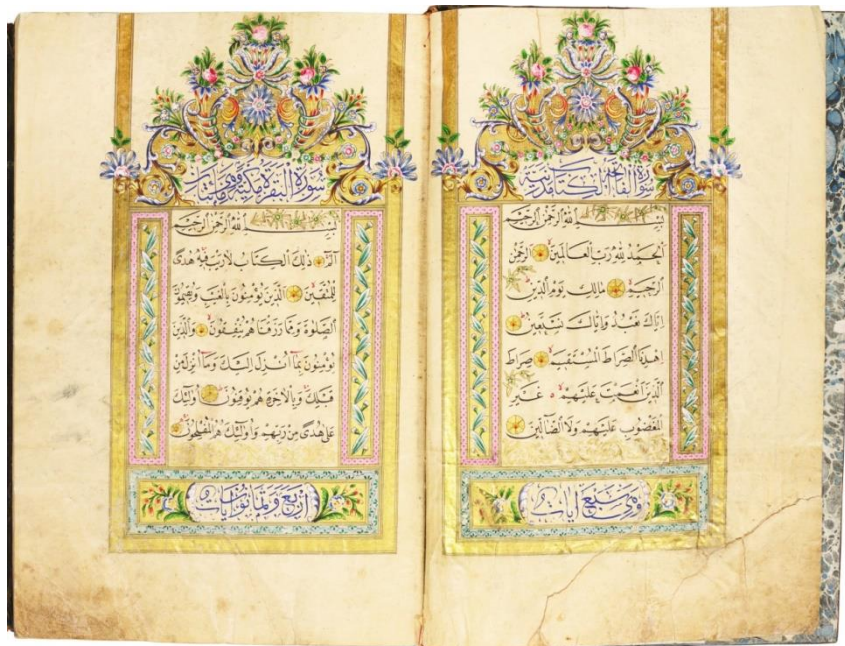 سُورَةُ الْفَاتِحَةِ الْكِتَابِ مَدَنِيَّة
بِسْمِ اللّٰهِ الرَّحْمٰنِ الرَّحِيمِ
اَلْحَمْدُ لِلّٰهِ رَبِّ الْعَالَمِينَ الرَّحْمٰنِ
الرَّحِيمِ مَالِكِ يَوْمِ الدِّينِ
اِيَّاكَ نَعْبُدُ وَاِيَّاكَ نَسْتَعِينُ
اِهْدِنَا الصِّرَاطَ الْمُسْتَقِيمَ صِرَاطَ
الَّذِينَ اَنْعَمْتَ عَلَيْهِمْ غَيْرِ
الْمَغْضُوبِ عَلَيْهِمْ وَلَا الضَّالِّينَ
وَهِيَ سَبْعُ اٰيَاتٍ
سُورَةُ الْبَقَرَةِ مَدَنِيَّةٌ وَهِيَ مِائَتَانِ
بِسْمِ اللّٰهِ الرَّحْمٰنِ الرَّحِيمِ
الٓمٓ ذٰلِكَ الْكِتَابُ لَا رَيْبَ فِيهِ هُدًى
لِلْمُتَّقِينَ اَلَّذِينَ يُؤْمِنُونَ بِالْغَيْبِ وَيُقِيمُونَ
الصَّلٰوةَ وَمِمَّا رَزَقْنَاهُمْ يُنْفِقُونَ وَالَّذِينَ
يُؤْمِنُونَ بِمَا اُنْزِلَ اِلَيْكَ وَمَا اُنْزِلَ مِنْ
قَبْلِكَ وَبِالْاٰخِرَةِ هُمْ يُوقِنُونَ اُولٰئِكَ
عَلٰى هُدًى مِنْ رَبِّهِمْ وَاُولٰئِكَ هُمُ الْمُفْلِحُونَ
اَرْبَعٌ وَثَمَانُونَ اٰيَات